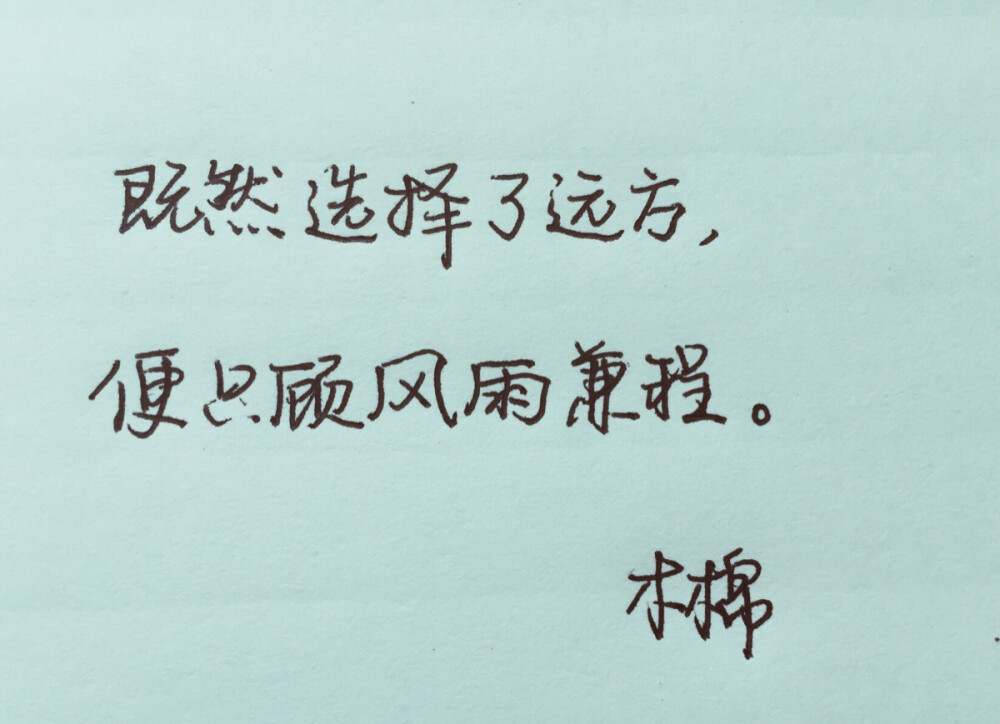 既然选择了远方,
便只顾风雨兼程。
木棉